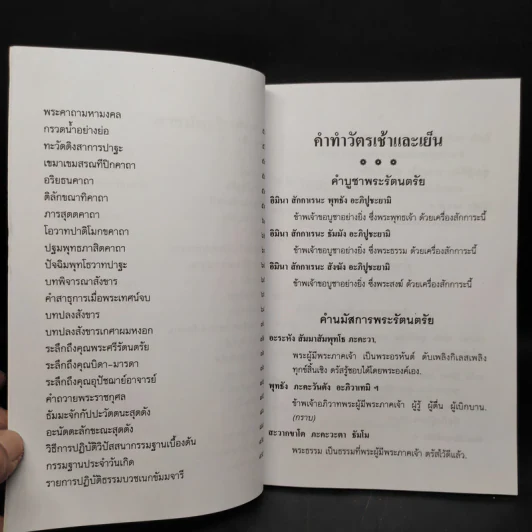 พระคาถามหามงคล
กรวดน้ำอย่างย่อ
ทะวัตติงสาการปาฐะ
เขมาเขมสรณทีปิกคาถา
อริยธนคาถา
ติลักขณาทิคาถา
ภารสุตตคาถา
โอวาทปาติโมกขคาถา
ปฐมพุทธภาสิตคาถา
ปัจฉิมพุทโธวาทปาฐะ
บทพิจารณาสังขาร
คำสาธุการเมื่อพระเทศน์จบ
บทปลงสังขาร
บทปลงสังขารเกศาผมหงอก
ระลึกถึงคุณพระศรีรัตนตรัย
ระลึกถึงคุณบิดา-มารดา
ระลึกถึงคุณอุปัชฌาย์อาจารย์
คำถวายพระราชกุศล
ธัมมะจักกัปปะวัตตนะสุตตัง
อะนัตตะลักขะณะสุตตัง
วิธีการปฏิบัติวิปัสสนากรรมฐานเบื้องต้น
กรรมฐานประจำวันเกิด
รายการปฏิบัติธรรมบวชเนกขัมมจารี
คำทำวัตรเช้าและเย็น
คำบูชาพระรัตนตรัย
อิมินา สักกาเรนะ พุทธัง อะภิปูชะยามิ
ข้าพเจ้าขอบูชาอย่างยิ่ง ซึ่งพระพุทธเจ้า ด้วยเครื่องสักการะนี้
อิมินา สักกาเรนะ ธัมมัง อะภิปูชะยามิ
ข้าพเจ้าขอบูชาอย่างยิ่ง ซึ่งพระธรรม ด้วยเครื่องสักการะนี้
อิมินา สักกาเรนะ สังฆัง อะภิปูชะยามิ
ข้าพเจ้าขอบูชาอย่างยิ่ง ซึ่งพระสงฆ์ ด้วยเครื่องสักการะนี้
คำนมัสการพระรัตนตรัย
อะระหัง สัมมาสัมพุทโธ ภะคะวา.
พระผู้มีพระภาคเจ้า เป็นพระอรหันต์ ดับเพลิงกิเลสเพลิง
ทุกข์สิ้นเชิง ตรัสรู้ชอบได้โดยพระองค์เอง.
พุทธัง ภะคะวันตัง อะภิวาเทมิ ฯ
ข้าพเจ้าอภิวาทพระผู้มีพระภาคเจ้า ผู้รู้ ผู้ตื่น ผู้เบิกบาน.
(กราบ)
สะวากขาโต ภะคะวะตา ธัมโม
พระธรรม เป็นธรรมที่พระผู้มีพระภาคเจ้า ตรัสไว้ดีแล้ว.